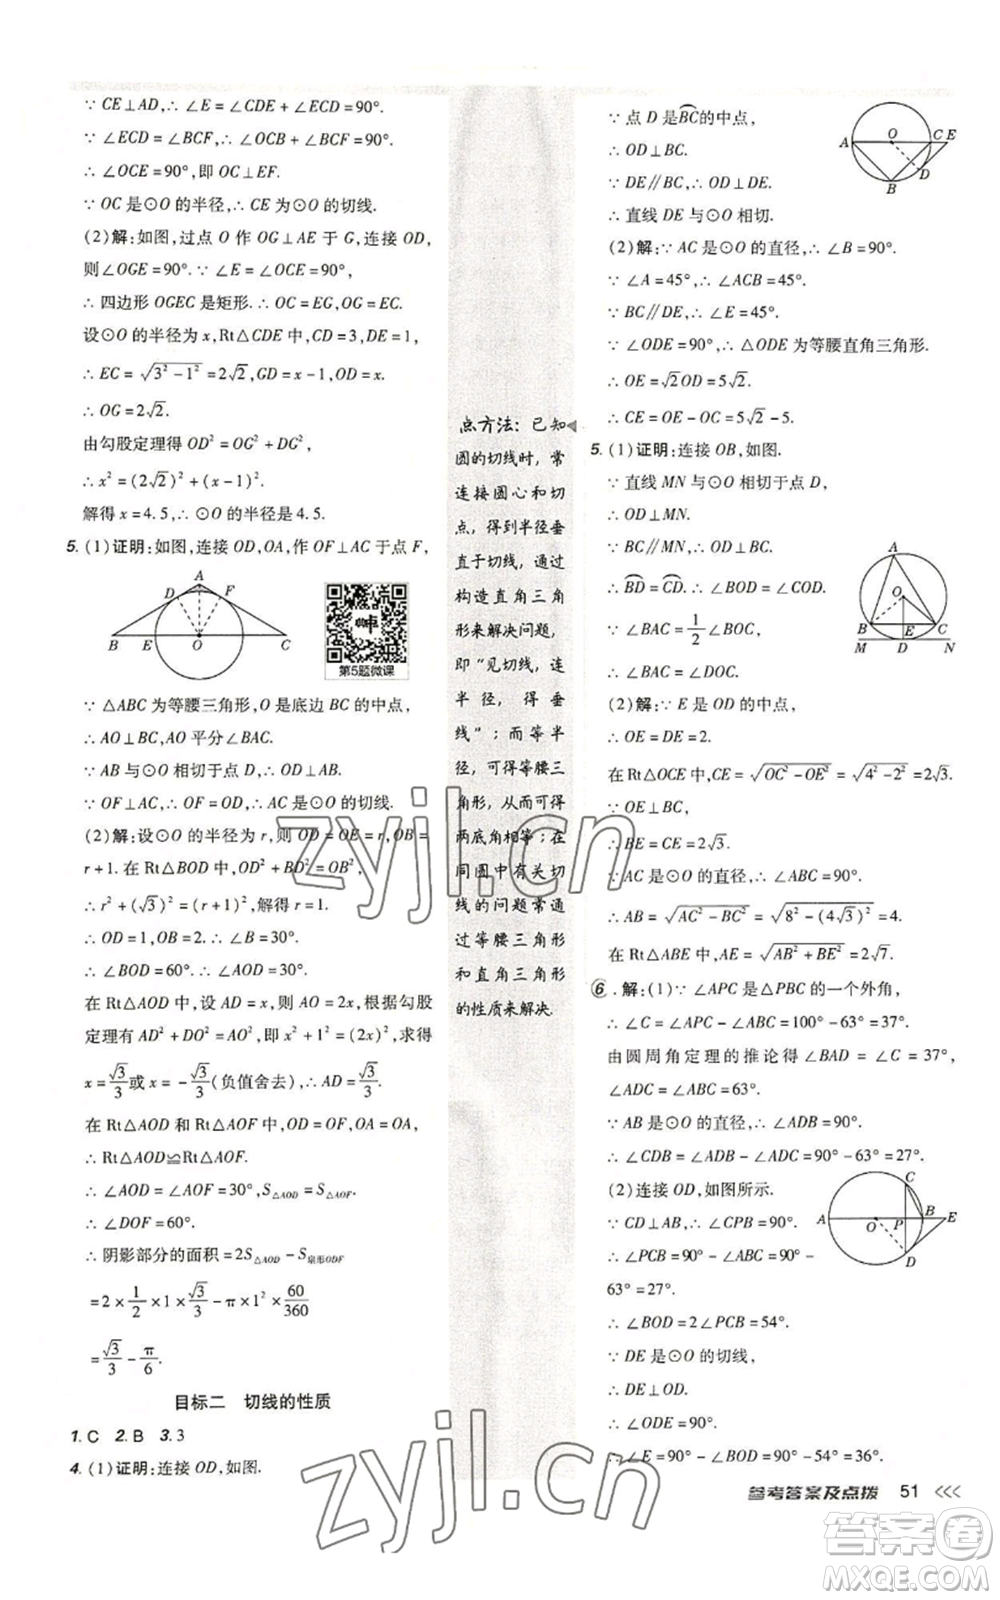 ∵ CE⊥AD,∴ ∠E = ∠CDE + ∠ECD = 90°.
∵ ∠ECD = ∠BCF,∴ ∠OCB + ∠BCF = 90°.
∴ ∠OCE = 90°,即 OC⊥EF.
∵ OC 是⊙O 的半径,∴ CE 为⊙O 的切线.
(2)解:如图,过点 O 作 OG⊥AE 于 G,连接 OD,
则∠OGE = 90°.
∴ 四边形 OGEC 是矩形.∴ OC = EG,OG = EC.
设⊙O 的半径为 x,Rt△CDE 中,CD = 3,DE = 1,
∴ EC = √(3² − 1²) = 2√2,GD = x − 1,OD = x.
∴ OG = 2√2.
由勾股定理得 OD² = OG² + DG²,
∴ x² = (2√2)² + (x − 1)².
解得 x = 4.5,∴ ⊙O 的半径是 4.5.
5. (1)证明:如图,连接 OD,OA,作 OF⊥AC 于点 F,
A
D F
B E O C
第5题微课
∵ △ABC 为等腰三角形,O 是底边 BC 的中点,
∴ AO⊥BC,AO 平分∠BAC.
∵ AB 与⊙O 相切于点 D,∴ OD⊥AB.
∵ OF⊥AC,∴ OF = OD,∴ AC 是⊙O 的切线.
(2)解:设⊙O 的半径为 r,则 OD = OE = r,OB =
r + 1. 在 Rt△BOD 中,OD² + BD² = OB²,
∴ r² + (√3)² = (r + 1)²,解得 r = 1.
∴ OD = 1,OB = 2. ∴ ∠B = 30°.
∴ ∠BOD = 60°. ∴ ∠AOD = 30°.
在 Rt△AOD 中,设 AD = x,则 AO = 2x,根据勾股
定理有 AD² + OD² = AO²,即 x² + 1² = (2x)²,求得
x = √3/3 或 x = −√3/3(负值舍去),∴ AD = √3/3.
在 Rt△AOD 和 Rt△AOF 中,OD = OF,OA = OA,
∴ Rt△AOD≌Rt△AOF.
∴ ∠AOD = ∠AOF = 30°,S△AOD = S△AOF.
∴ ∠DOF = 60°.
∴ 阴影部分的面积 = 2S△AOD − S扇形ODF
= 2 × 1/2 × 1 × √3/3 − π × 1² × 60/360
= √3/3 − π/6.
目标二 切线的性质
1. C 2. B 3. 3
4. (1)证明:连接 OD,如图.
点方法:已知
圆的切线时,常
连接圆心和切
点,得到半径垂
直于切线,通过
构造直角三角
形来解决问题,
即“见切线,连
半径,得垂
线”;而等半
径,可得等腰三
角形,从而可得
两底角相等;在
同圆中有关切
线的问题常通
过等腰三角形
和直角三角形
的性质来解决.
∵ 点 D 是BC⌒的中点,
∴ OD⊥BC.
∵ DE∥BC,∴ OD⊥DE.
∴ 直线 DE 与⊙O 相切.
A O C E
B D
(2)解:∵ AC 是⊙O 的直径,∴ ∠B = 90°.
∵ ∠A = 45°,∴ ∠ACB = 45°.
∵ BC∥DE,∴ ∠E = 45°.
∵ ∠ODE = 90°,∴ △ODE 为等腰直角三角形.
∴ OE = √2OD = 5√2.
∴ CE = OE − OC = 5√2 − 5.
5. (1)证明:连接 OB,如图.
∵ 直线 MN 与⊙O 相切于点 D,
∴ OD⊥MN.
∵ BC∥MN,∴ OD⊥BC.
∴ BD⌒ = CD⌒. ∴ ∠BOD = ∠COD.
∵ ∠BAC = 1/2∠BOC,
∴ ∠BAC = ∠DOC.
A
O
B E C
M D N
(2)解:∵ E 是 OD 的中点,
∴ OE = DE = 2.
在 Rt△OCE 中,CE = √(OC² − OE²) = √(4² − 2²) = 2√3.
∵ OE⊥BC,
∴ BE = CE = 2√3.
∵ AC 是⊙O 的直径,∴ ∠ABC = 90°.
∴ AB = √(AC² − BC²) = √(8² − (4√3)²) = 4.
在 Rt△ABE 中,AE = √(AB² + BE²) = 2√7.
6. 解:(1)∵ ∠APC 是△PBC 的一个外角,
∴ ∠C = ∠APC − ∠ABC = 100° − 63° = 37°.
由圆周角定理的推论得 ∠BAD = ∠C = 37°,
∠ADC = ∠ABC = 63°.
∵ AB 是⊙O 的直径,∴ ∠ADB = 90°.
∴ ∠CDB = ∠ADB − ∠ADC = 90° − 63° = 27°.
(2)连接 OD,如图所示.
∵ CD⊥AB,∴ ∠CPB = 90°.
∴ ∠PCB = 90° − ∠ABC = 90° −
63° = 27°.
C
A O P B E
D
∴ ∠BOD = 2∠PCB = 54°.
∵ DE 是⊙O 的切线,
∴ DE⊥OD.
∴ ∠ODE = 90°.
∴ ∠E = 90° − ∠BOD = 90° − 54° = 36°.
参考答案及点拨 51 <<<
zyjl.cn
zyjl.cn
答案圈
MXQE.COM